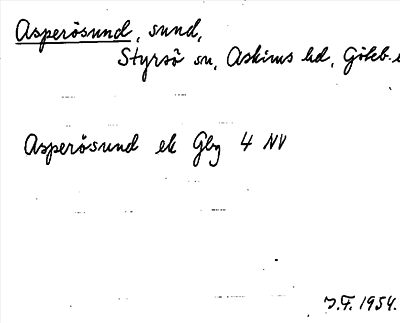 Asperösund, sund,
Styrsö sn, Askims hd, Göteb.
Asperösund ek Gbg 4 NV
J.F. 1954.